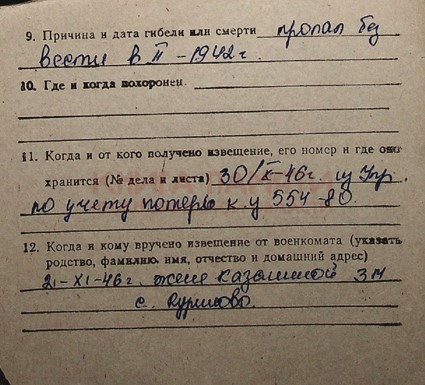 9. Причина и дата гибели или смерти пропал без
вести в II - 1942 г.
10. Где и когда похоронен
11. Когда и от кого получено извещение, его номер и где оно
хранится (№ дела и листа) 30/X-46г. из Упр.
по учету потерь к. у 554-80.
12. Когда и кому вручено извещение от военкомата (указать
родство, фамилию, имя, отчество и домашний адрес)
2-XI-46г. жене Казаниной ЗМ
с. Курилово.